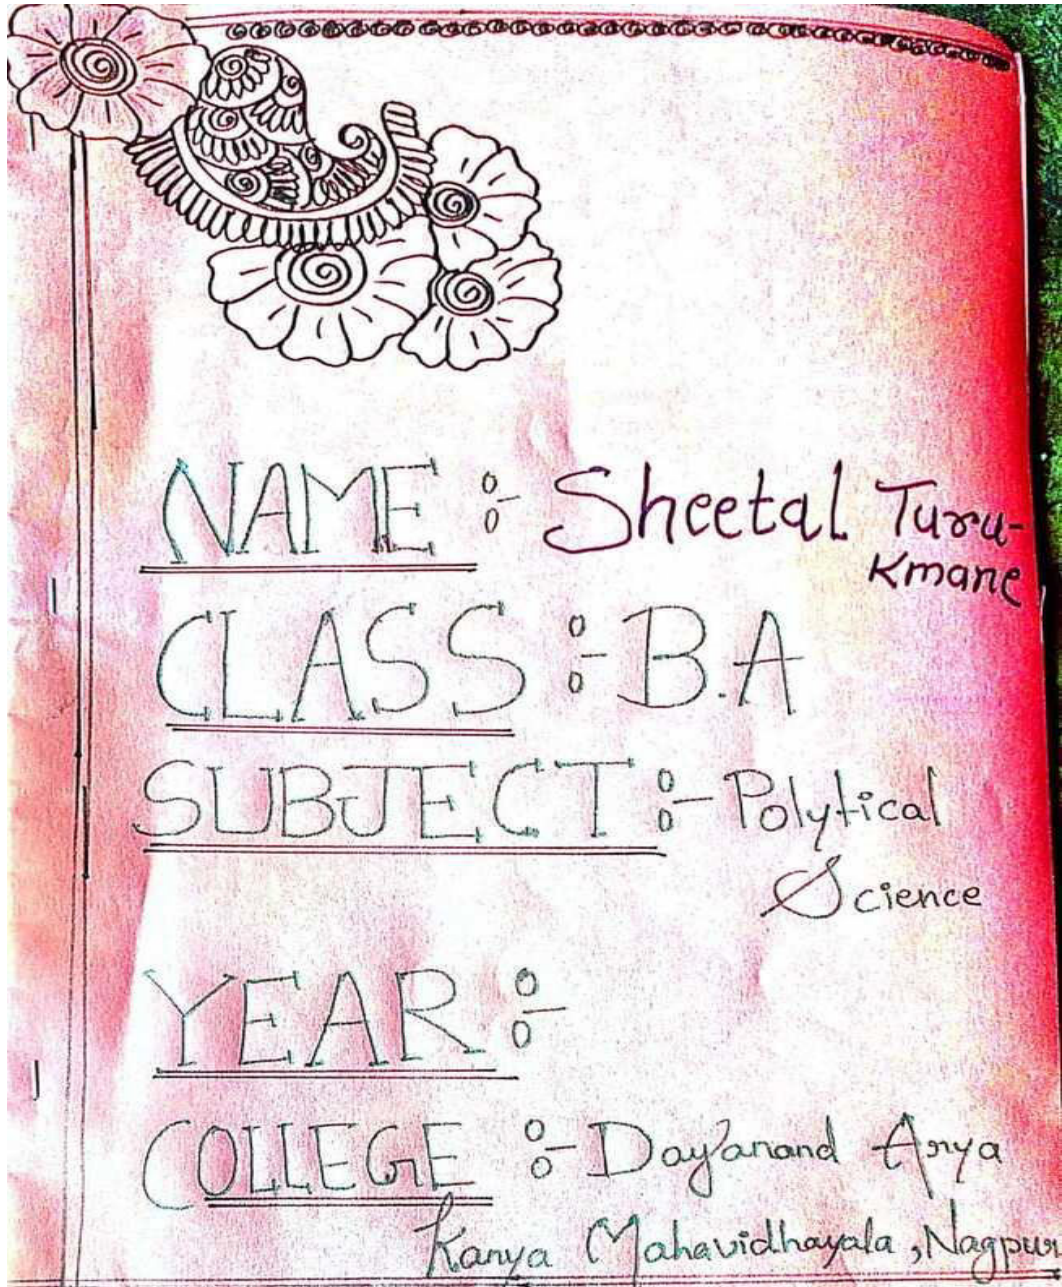 NAME :- Sheetal Turu-
kmane
CLASS :- B.A
SUBJECT :- Polytical
Science
YEAR :-
COLLEGE :- Dayanand Arya
Kanya Mahavidhayala, Nagpur